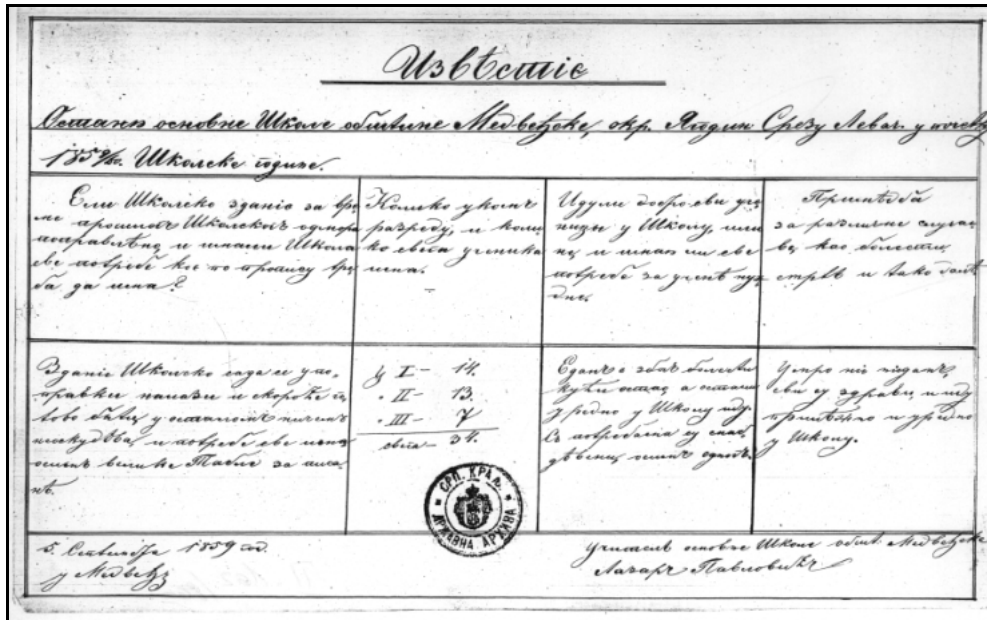 Извѣстіе
О станю основне Школе обштине Медвеђске, окр. Ягодин. Срезу Левач. у почетку
1859/60. Школске године.
Ели Школско зданіе за вре
ме прошлог Школског одмора
поправлѣно и има ли Школа
све потребе кое по пропису тре
ба да има?
Колико у ком
разреду, и коли
ко свега ученика
има.
Иду ли добро сви уче
ници у Школу, или
не, и имаю ли све
потребе за ученѣ ну
дне.
Примѣдба
за различне случає
ве, као болести,
смрть и тако далѣ
Зданіе Школско сада се у по-
правки налази и скоро ће го
тово бити, у осталом ничим
неоскудѣва, и потребе све има
осим велике Табле за писа
нѣ.
У I – 14.
„ II – 13.
„ III – 7
свега – 34.
Едан є због болести
код куће остао а остали
уредно у Школу иду.
Съ потребама су снаб
дѣвени, осим едног.
Умро ніє ніедан,
сви су здрави и иду
прилѣжно и уредно
у Школу.
СРП. КРАЉ.
ДРЖАВНА АРХИВА
5. Септембра 1859 год.
у Медвеђи
Учитель основне Школе обшт. Медвеђске
Лазарь Павловићь